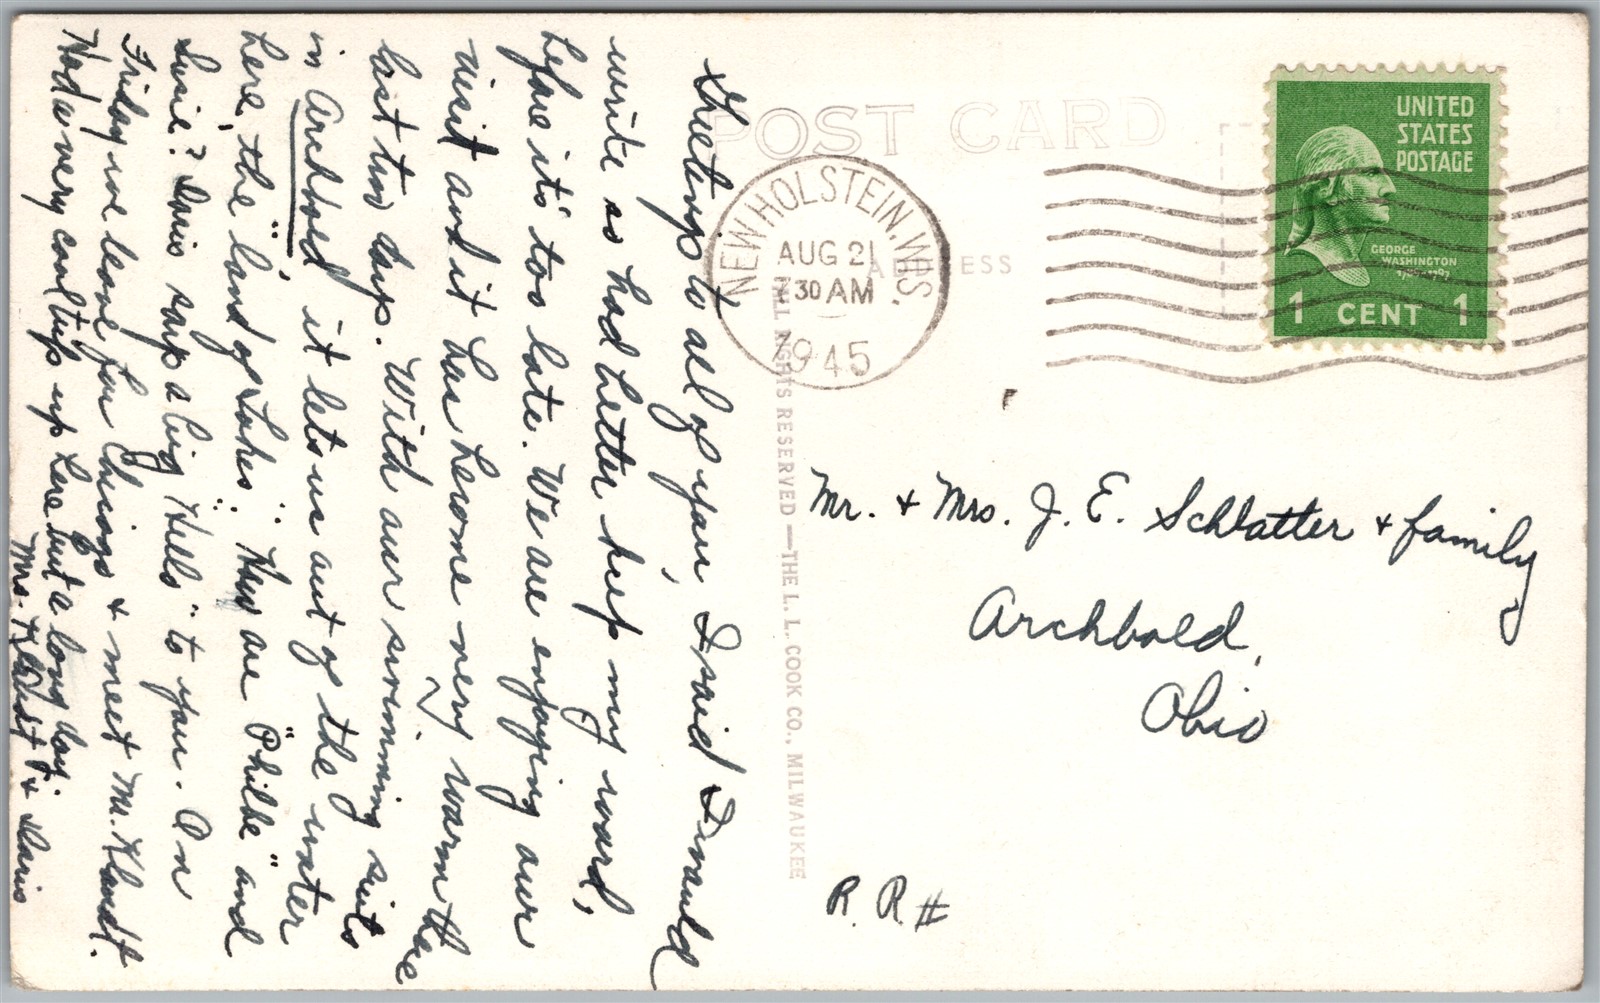 POST CARD
ADDRESS
NEW HOLSTEIN. WIS.
AUG 21
7 30 AM
1945
UNITED
STATES
POSTAGE
GEORGE
WASHINGTON
1 CENT 1
ALL RIGHTS RESERVED — THE L. L. COOK CO., MILWAUKEE
Greetings to all of you, I said I would
write so had better keep my word,
before it's too late. We are enjoying our
visit and it has become very warm the
last two days. With our swimming suits
in Archbold it lets us out of the water
here, the "land of Lakes". How are "Philbe" and
Susie? Doris says a big "Hello" to you. On
Friday we leave for Chicago & meet Mr. Klaudt.
Had a very cool trip up here but a long day.
Mrs. Klaudt & Doris
Mr. & Mrs. J. E. Schlatter & family
Archbold,
Ohio
R. R #